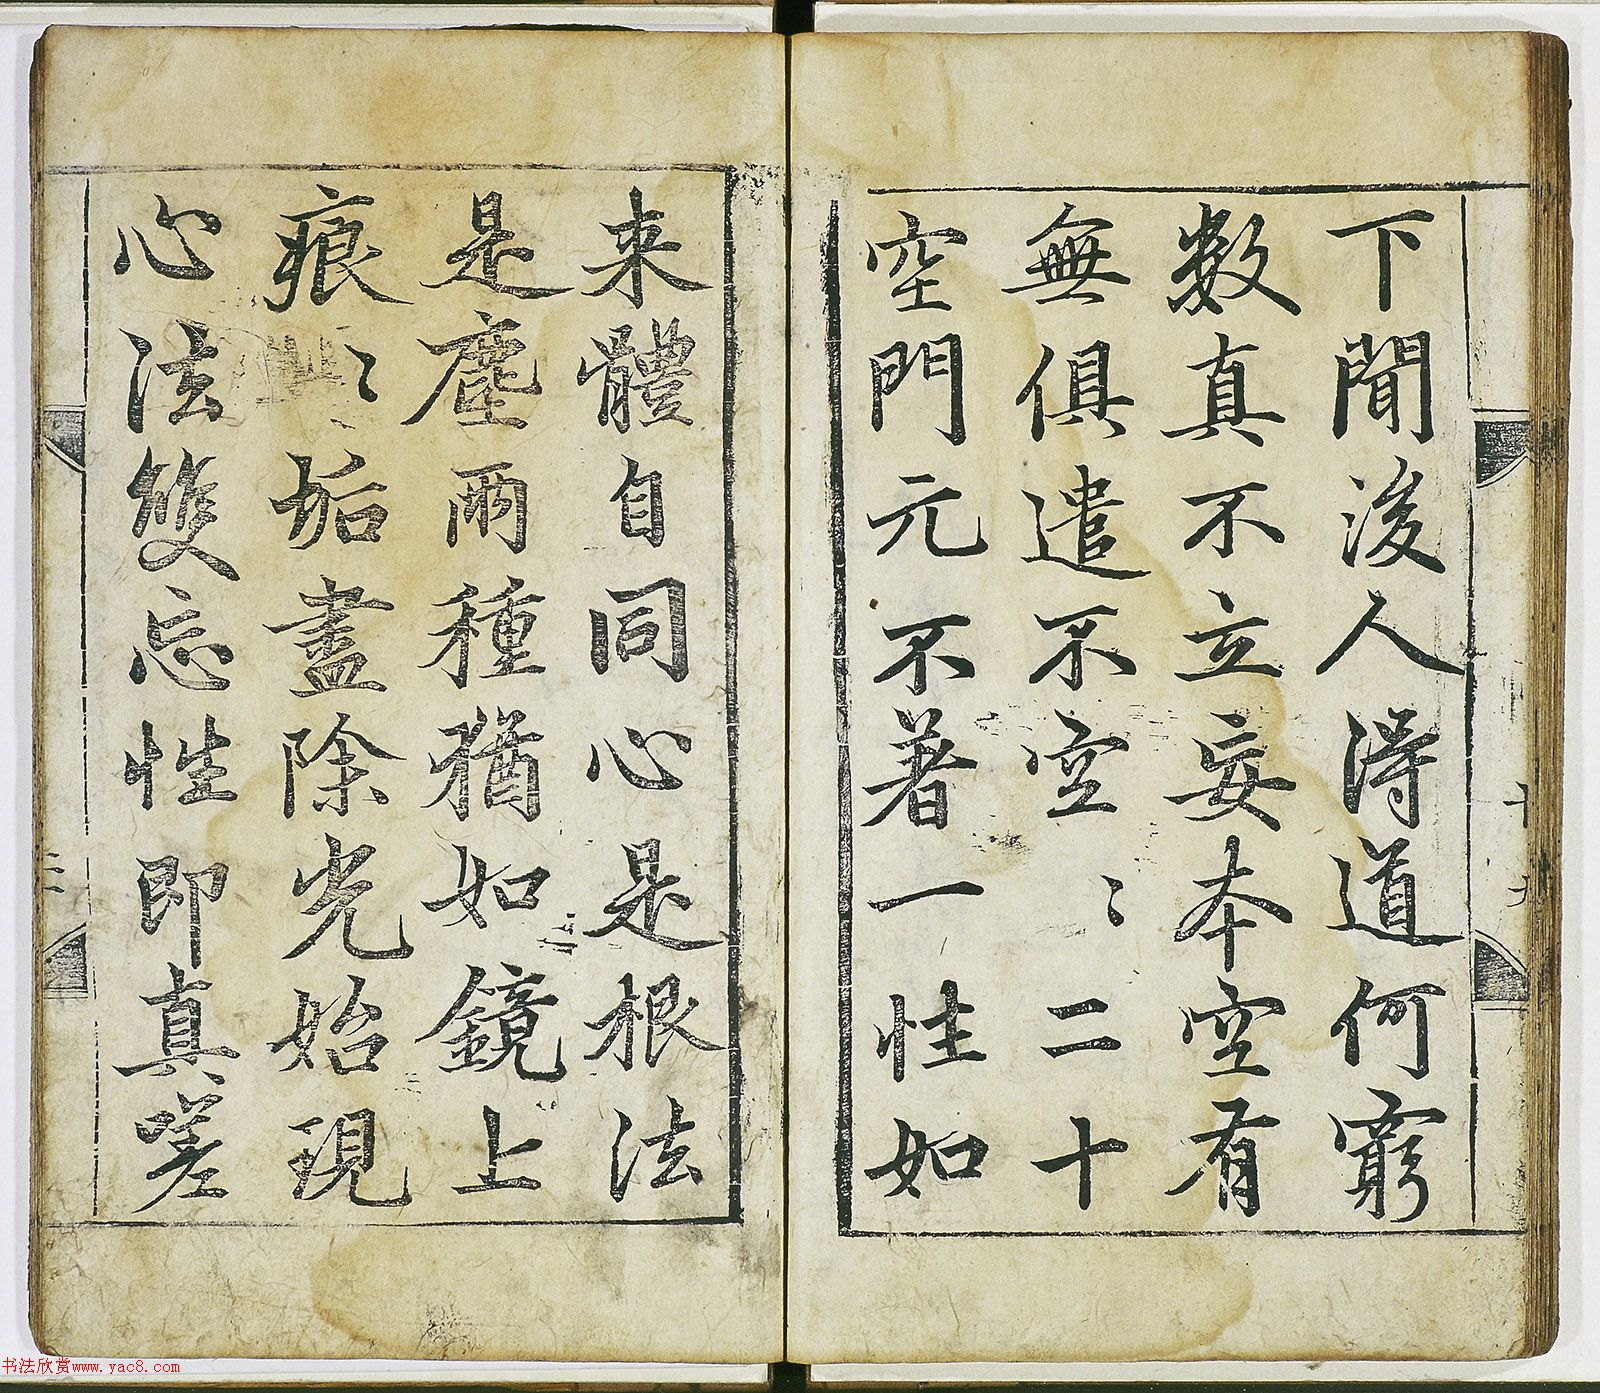 下聞後人得道何窮
數真不立妄本空有
無俱遣不空〻二十
空門元不著一性如
来體自同心是根法
是塵兩種猶如鏡上
痕〻垢盡除光始現
心法雙忘性即真嗟
十九
书法欣赏www.yac8.com